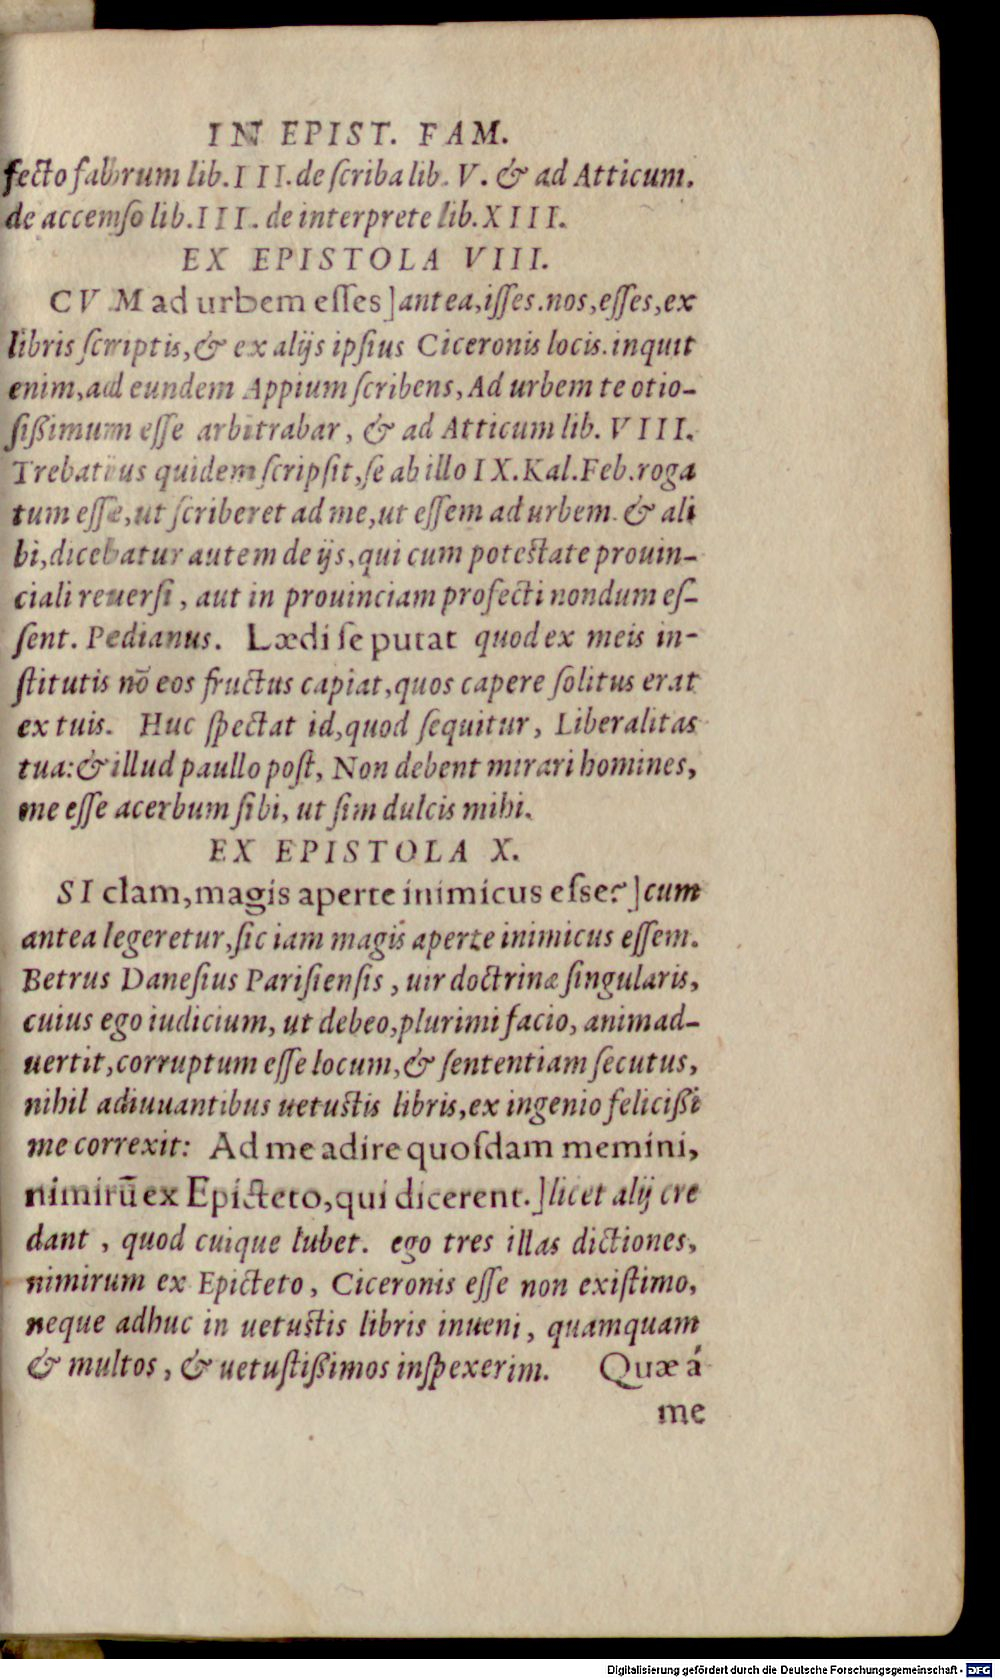 IN EPIST. FAM.
fecto fabrum lib. III. de scriba lib. V. & ad Atticum.
de accenso lib. III. de interprete lib. XIII.
EX EPISTOLA VIII.
CVM ad urbem esses] antea, isses. nos, esses, ex
libris scriptis, & ex alijs ipsius Ciceronis locis. inquit
enim, ad eundem Appium scribens, Ad urbem te otio-
sißimum esse arbitrabar, & ad Atticum lib. VIII.
Trebatius quidem scripsit, se ab illo IX. Kal. Feb. roga
tum esse, ut scriberet ad me, ut essem ad urbem. & ali
bi, dicebatur autem de ijs, qui cum potestate prouin-
ciali reuersi, aut in prouinciam profecti nondum es-
sent. Pedianus. Lædi se putat quod ex meis in-
stitutis nõ eos fructus capiat, quos capere solitus erat
ex tuis. Huc spectat id, quod sequitur, Liberalitas
tua: & illud paullo post, Non debent mirari homines,
me esse acerbum sibi, ut sim dulcis mihi.
EX EPISTOLA X.
SI clam, magis aperte inimicus esse?] cum
antea legeretur, sic iam magis aperte inimicus essem.
Betrus Danesius Parisiensis, uir doctrinæ singularis,
cuius ego iudicium, ut debeo, plurimi facio, animad-
uertit, corruptum esse locum, & sententiam secutus,
nihil adiuuantibus uetustis libris, ex ingenio felicißi
me correxit: Ad me adire quosdam memini,
nimirũ ex Epicteto, qui dicerent.] licet alij cre
dant, quod cuique lubet. ego tres illas dictiones,
nimirum ex Epicteto, Ciceronis esse non existimo,
neque adhuc in uetustis libris inueni, quamquam
& multos, & uetustißimos inspexerim. Quæ á
me
Digitalisierung gefördert durch die Deutsche Forschungsgemeinschaft - DFG